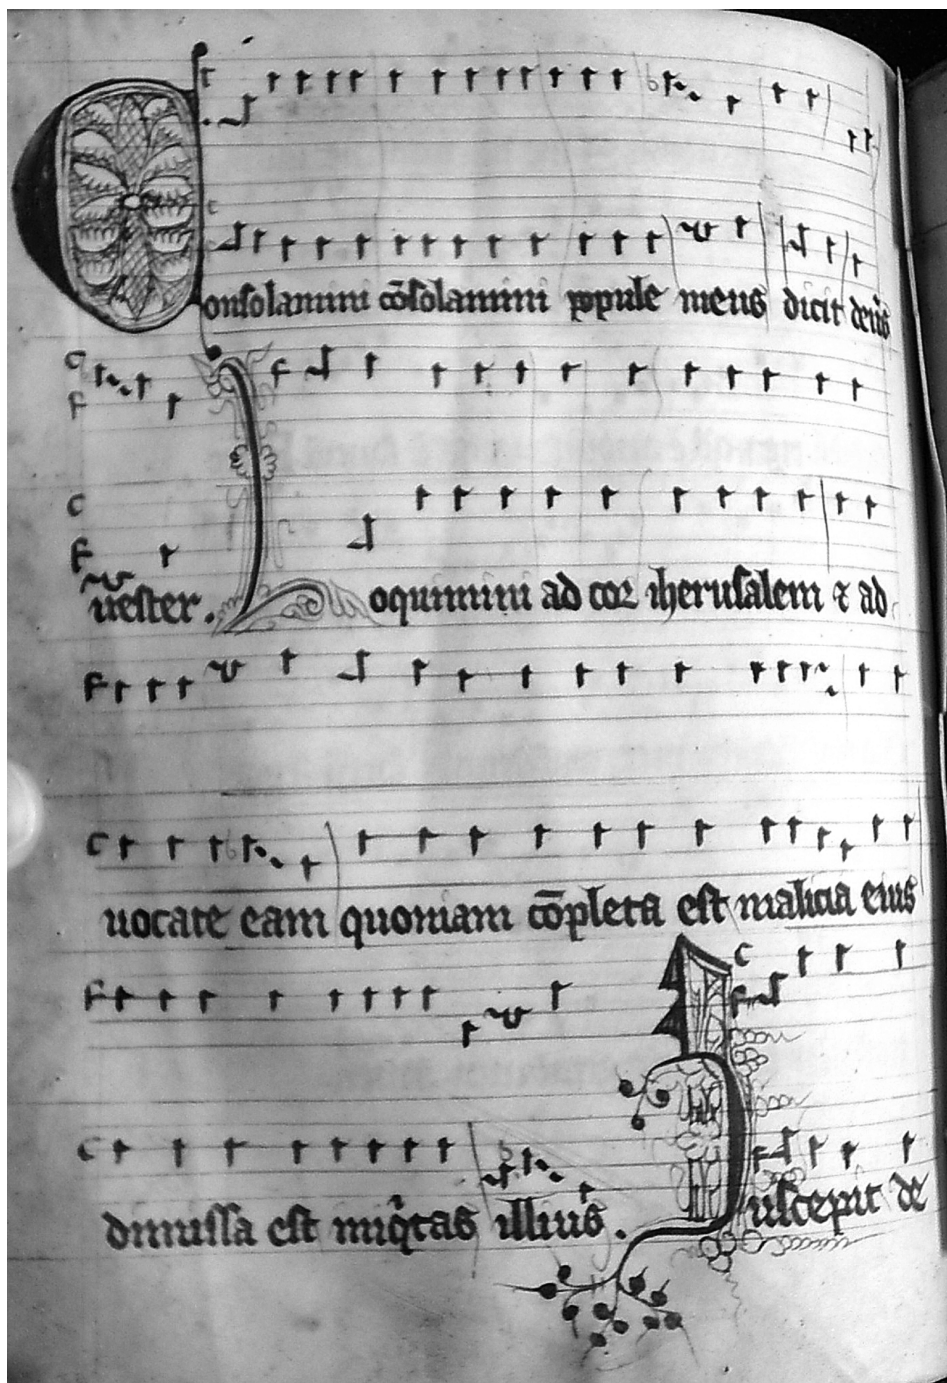 Consolamini cōsolamini popule meus dicit deus
uester. Loquimini ad cor iherusalem ⁊ ad
uocate eam quoniam cōpleta est malicia eius
dimissa est iniq̇tas illius. Suscepit de